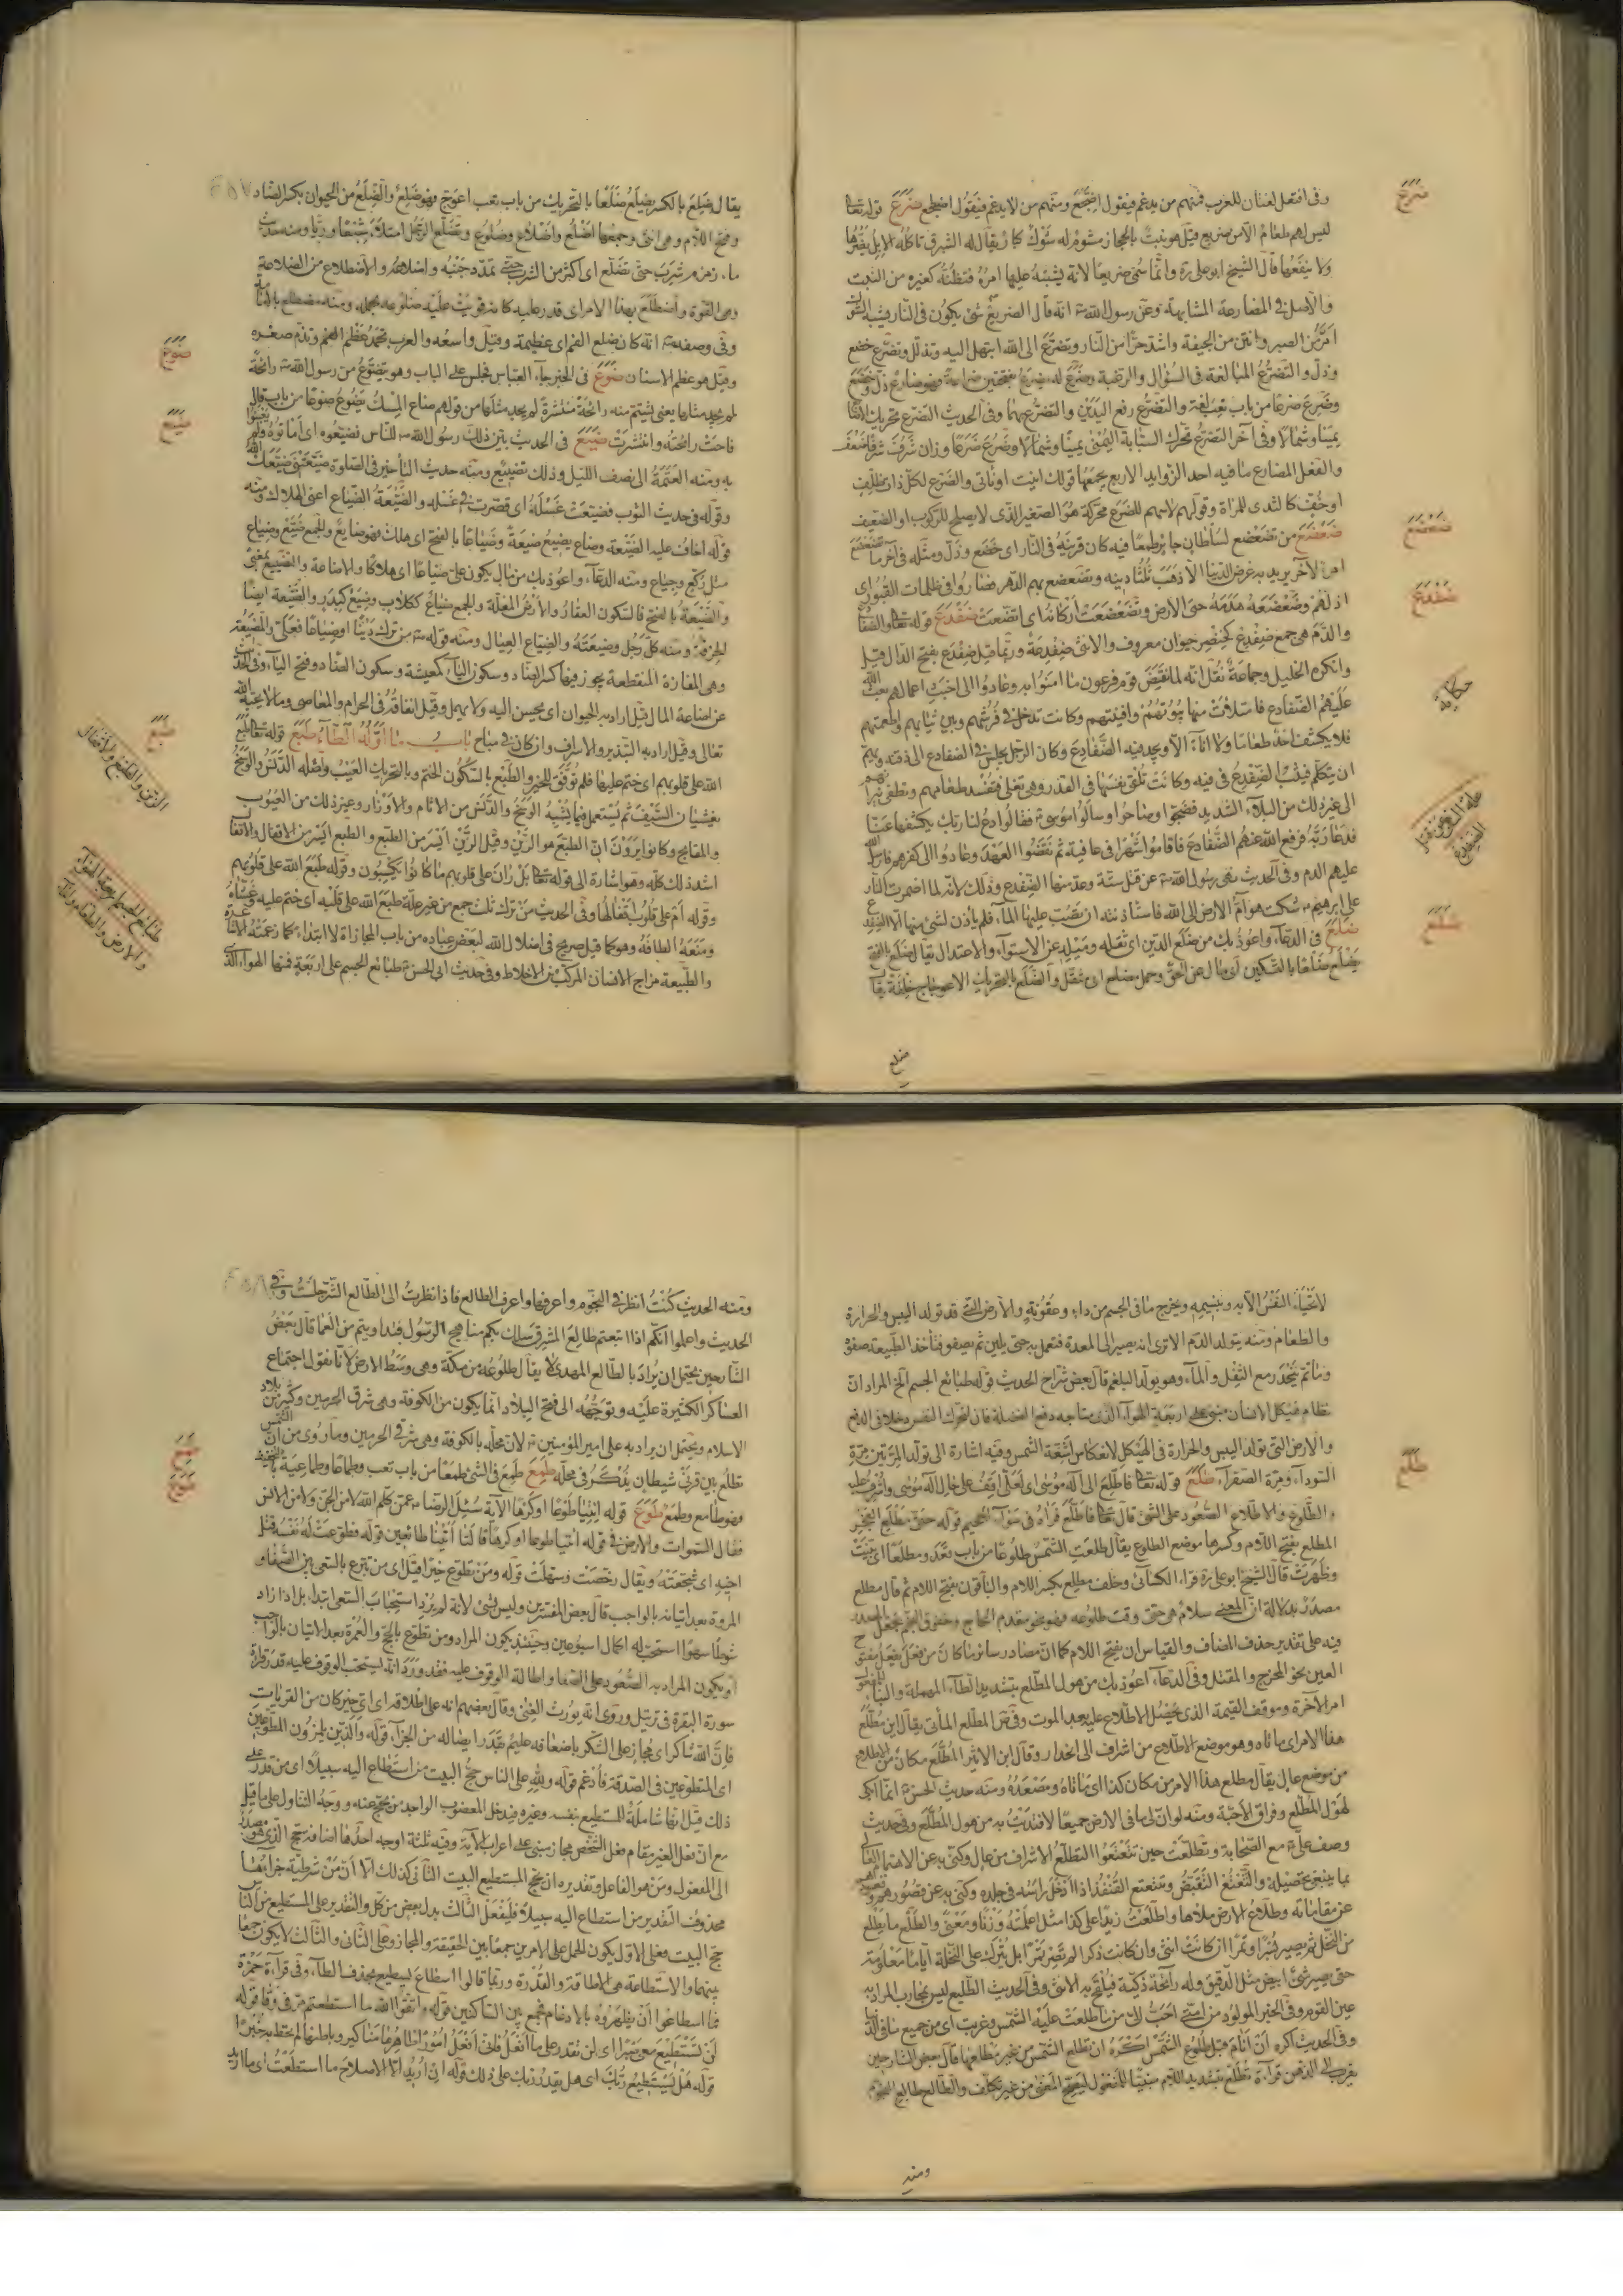 وفى افتعل لغتان للعرب فمنهم من يدغم فيقول اضّجع ومنهم من لا يدغم فيقول اضطجع ضرع قوله تعالى
ليس لهم طعام الا من ضريع قيل هو نبت بالحجاز مشوم له شوك كبار يقال له الشبرق تاكله الابل يضرها
ولا ينفعها قال الشيخ ابو على ره وانما سمى ضريعا لانه يشتبه عليها امره فتظنه كغيره من النبت
والاصل فى المضارعة المشابهة وعن رسول الله ص انه قال الضريع شئ يكون فى النار يشبه الشوك
امرّ من الصبر وانتن من الجيفة واشد حرّا من النار وتضرّع الى الله ابتهل اليه وتذلل وتضرّع خضع
وذل والتضرّع المبالغة فى السؤال والرغبة وضرع له يضرع بفتحتين ضراعة فهو ضارع ذل وخضع
وضرع ضرعا من باب تعب لغة والتضرّع رفع اليدين والتضرّع بهما وفى الحديث التضرع تحريك الاصابع
يمينا وشمالا وفى آخر التضرّع تحرك السبابة اليمنى يمينا وشمالا وضرع ضرعا وزان شرف شرفا ضعف
والفعل المضارع ما فيه احد الزوايد الاربع يجمعها قولك انيت او نأتى والضرع لكل ذات ظلف
او خف كالثدى للمراة وقولهم لا سهم للضرع محركة هو الصغير الذى لا يصلح للركوب او الضعيف
ضعضع من تضعضع لسلطان جائر طمعا فيه كان قرينه فى النار اى خضع وذل ومثله فى آخر ما تضعضع
امرؤ لآخر يريد به غرض الدنيا الا ذهب ثلثا دينه وتضعضع بهم الدهر فصاروا فى ظلمات القبور اى
اذلهم وضعضعه هدمه حتى الارض وتضعضعت اركانه اى اتضعت ضفدع قوله تعالى والضفادع
والدم هى جمع ضفدع كخنصر حيوان معروف والانثى ضفدعة وربما قيل ضفدع بفتح الدال قيل
وانكره الخليل وجماعة نقل انه لما نقض قوم فرعون ما امنوا به وعادوا الى اخبث اعمالهم بعث الله
عليهم الضفادع فامتلات منها بيوتهم وافنيتهم وكانت تدخل فى فرشهم وبين ثيابهم واطعمتهم
فلا يكشف احد طعاما ولا اناء الا وجد فيه الضفادع وكان الرجل يجلس فى الضفادع الى ذقنه ويهم
ان يتكلم فيثب الضفدع فى فيه وكانت تلقى نفسها فى القدر وهى تغلى فتفسد طعامهم وتطفى نيرانهم
الى غير ذلك من البلاء الشديد فضجوا وصاحوا وسألوا موسى ع فقالوا ادع لنا ربك يكشفها عنا
فدعا ربه فرفع الله عنهم الضفادع فاقاموا شهرا فى عافية ثم نقضوا العهد وعادوا الى كفرهم فارسل الله
عليهم الدم وفى الحديث نهى رسول الله ص عن قتل ستة وعد منها الضفدع وذلك لانه لما اضرمت النار
على ابرهيم ع شكت هوام الارض الى الله فاستاذنته ان تصب عليها الماء فلم ياذن لشئ منها الا الضفدع
ضلع فى الدعاء واعوذ بك من ضلع الدين اى ثقله وميله عن الاستواء والاعتدال يقال ضلع بالفتح
يضلع ضلعا بالتسكين اى مال عن الحق وحمل مضلع اى مثقل والضلع بالتحريك الاعوجاج خلقة يقا
ضلع
ضرع
ضعضع
ضفدع
حكاية
علة النهى عن قتل الضفدع
ضلع
يقال ضلع بالكسر يضلع ضلعا بالتحريك من باب تعب اعوج فهو ضلع والضلع من الحيوان بكسر الضاد
وفتح اللام وهى انثى وجمعها اضلع واضلاع وضلوع وتضلع الرجل امتلأ شبعا وريا ومنه حديث
ماء زمزم شرب حتى تضلع اى اكثر من الشرب حتى تمدد جنبه واضلاعه والاضطلاع من الضلاعة
وهى القوة واضطلع بهذا الامر اى قدر عليه كانه قويت عليه ضلوعه بحمله ومنه مضطلع بالامامة
وفى وصفه ص انه كان ضليع الفم اى عظيمه وقيل واسعه والعرب تحمد عظم الفم وتذم صغره
وقيل هو عظم الاسنان ضوع فى الخبر جاء العباس فجلس على الباب وهو يتضوع من رسول الله ص رائحة
لم يجد مثلها يعنى يشتم منه رائحة منتشرة لم يجد مثلها من قولهم ضاع المسك يضوع ضوعا من باب قال
فاحت رائحته وانتشرت ضيع فى الحديث بين ذلك رسول الله ص للناس فضيعوه اى اماتوه ولم يعتنوا
به ومنه العتمة الى نصف الليل وذلك تضييع ومنه حديث التأخير فى الصلوة ضيعتنى ضيعك الله
وقوله فى حديث الثوب فضيعت غسله اى قصرت فى غسله والضيعة الضياع اعنى الهلاك ومنه
قوله اخاف عليه الضيعة وضاع يضيع ضيعة وضياعا بالفتح اى هلك فهو ضايع والجمع ضيّع وضياع
مثل ركع وجياع ومنه الدعاء واعوذ بك من مال يكون على ضياعا اى هلاكا والاضاعة والتضييع بمعنى
والضيعة بالفتح فالسكون العقار والارض المغلة والجمع ضياع ككلاب وضيع كبدر والضيعة ايضا
الحرفة ومنه كل رجل وضيعته والضياع العيال ومنه قوله ص من ترك دينا او ضياعا فعلىّ والمضيعة
وهى المفازة المنقطعة يجوز فيها كسر الضاد وسكون الياء كمعيشة وسكون الضاد وفتح الياء وفى الحديث
عن اضاعة المال قيل اراد به الحيوان اى يحسن اليه ولا يهمل وقيل انفاقه فى الحرام والمعاصى وما لا يحبه الله
تعالى وقيل اراد به التبذير والاسراف وان كان فى مباح باب ما اوله الطاء طبع قوله تعالى طبع
الله على قلوبهم اى ختم عليها فلم توفق للخير والطبع بالسكون الختم وبالتحريك العيب واصله الدنس والوسخ
يغشيان السيف ثم يستعمل فيما يشبه الوسخ والدنس من الاثام والاوزار وغير ذلك من العيوب
والمقابح وكانوا يرون ان الطبع هو الرين وقيل الرين ايسر من الطبع والطبع ايسر من الاقفال والاقفال
اشد ذلك كله وهو اشارة الى قوله تعالى بل ران على قلوبهم ما كانوا يكسبون وقوله طبع الله على قلوبهم
وقوله ام على قلوب اقفالها وفى الحديث من ترك ثلث جمع من غير علة طبع الله على قلبه اى ختم عليه وغشاه
ومنعه الطافه وهو كما قيل صريح فى اضلال الله لبعض عباده من باب المجازاة لا ابتداء كما زعمته الاشاعرة
والطبيعة مزاج الانسان المركب من الاخلاط وفى حديث ابى الحسن ع طبائع الجسم على اربعة فمنها الهواء الذى
ضوع
ضيع
طبع
الرين والطبع والاقفال
طبائع الجسم اربعة الهواء
والارض والطعام والماء
لا تحيا النفس الا به وبنسيمه ويخرج ما فى الجسم من داء وعفونة والارض التى قد تولد اليبس والحرارة
والطعام ومنه يتولد الدم الا ترى انه يصير الى المعدة فتعمل به حتى يلين ثم يصفو فتاخذ الطبيعة صفوه
وما ثم ينحدر مع الثفل والماء وهو يولد البلغم قال بعض شراح الحديث قوله طبائع الجسم الخ المراد ان
نظام هيكل الانسان مبنى على اربعة الهواء الذى
والارض التى تولد اليبس والحرارة فى الهيكل لانعكاس اشعة الشمس وفيه اشارة الى تولد المرتين مرة
السوداء ومرة الصفراء طلع قوله تعالى فاطلع الى اله موسى اى لعلى اقف على حال اله موسى واشرف عليه
والطلوع والاطلاع الصعود على الشئ قال تعالى فاطلع فرآه فى سواء الجحيم قوله حتى مطلع الفجر
المطلع بفتح اللام وكسرها موضع الطلوع يقال طلعت الشمس طلوعا من باب قعد ومطلعا اى بينت
وظهرت قال الشيخ ابو على ره قراء الكسائى وخلف مطلع بكسر اللام والباقون بفتح اللام ثم قال مطلع
مصدر بدلالة ان المعنى سلام هى حتى وقت طلوعه فهو نحو مقدم الحاج وخفوق النجم بجعل المصدر
فيه على تقدير حذف المضاف والقياس ان يفتح اللام كما ان مصادر سائر ما كان من فعل يفعل مفتوح
العين نحو المخرج والمقتل وفى الدعاء اعوذ بك من هول المطلع بتشديد الطاء المهملة والبناء للمفعول
امر الآخرة وموقف القيمة الذى يحصل الاطلاع عليه بعد الموت وفى المطلع المأتى يقال اين مطلع
هذا الامر اى مأتاه وهو موضع الاطلاع من اشراف الى انحدار وقال ابن الاثير المطلع مكان الاطلاع
من موضع عال يقال مطلع هذا الامر من مكان كذا اى مأتاه ومصعده ومنه حديث الحسن ع انما ابكى
لهول المطلع وفراق الاحبة ومنه لو ان لى ما فى الارض جميعا لافتديت به من هول المطلع وفى حديث
وصف على ع مع الصحابة وتطلعت حين تقبعوا التطلع الاشراف من عال وكنى به عن الاهتمام
عن مقاماته وطلاع الارض ملاها واطلعت زيدا على كذا مثل اعلمته وزنا ومعنى والطلع ما يطلع
من النخل ثم يصير بسرا وتمرا ان كانت انثى وان كانت ذكرا لم تصر تمرا بل يترك على النخلة اياما معلومة
حتى يصير شئ ابيض مثل الدقيق وله رائحة ذكية فيلقح به الانثى وفى الحديث الطليع ليس بمحارب المراد به
عين القوم وفى الخبر المولود من امتى احب الى مما طلعت عليه الشمس وغربت اى من جميع ما فى الدنيا
وفى الحديث اكره ان انام قبل طلوع الشمس واكره ان تطلع الشمس من غير مطلعها قال بعض الشارحين
يقرب الى الذهن قراءة تطلع بتشديد اللام مبنيا للمفعول ليصح المعنى من غير تكلف والطالع طالع النجوم
ومنه
طلع
ومنه الحديث كنت انظر فى النجوم واعرفها واعرف الطالع فاذا نظرت الى الطالع الشر جلست وفى
الحديث واعلموا انكم اذا اتبعتم طالع المشرق سلك بكم مناهج الرسول فتداويتم من العما قال بعض
الشارحين يحتمل ان يراد بالطالع المهدى لا يقال طلوعه من مكة وهى وسط الارض لانا نقول اجتماع
العساكر الكثيرة عليه وتوجهه الى فتح البلاد انما يكون من الكوفة وهى شرق الحرمين وكثير من بلاد
الاسلام ويحتمل ان يراد به على امير المؤمنين ع لان محله بالكوفة وهى شرقى الحرمين وما روى من ان الشمس
تطلع بين قرنى شيطان يذكر فى محله طمع طمع فى الشئ طمعا من باب تعب وطماعا وطماعية بالتخفيف
فهو طامع وطمع طوع قوله ائتيا طوعا او كرها الآية سئل الرضا ع عمن كلم الله لا من الجن ولا من الانس
فقال السموات والارض فى قوله ائتيا طوعا او كرها قالتا اتينا طائعين قوله فطوعت له نفسه قتل
اخيه اى شجعته ويقال رخصت وسهلت قوله ومن تطوع خيرا قيل اى من تبرع بالسعى بين الصفا و
المروة بعد اتيانه بالواجب قال بعض المفسرين وليس بشئ لانه لم يرد استحباب السعى ابتداء بل اذا زاد
شوطا سهوا استحب له اكمال اسبوعين وحينئذ يكون المراد ومن تطوع بالحج والعمرة بعد الاتيان بالواجب
او يكون المراد به الصعود على الصفا واطالة الوقوف عليه فقد ورد انه يستحب الوقوف عليه قدر قراءة
سورة البقرة فى ترتيل وروى انه يورث الغنى وقال بعضهم انه على اطلاقه اى اى خير كان من القربات
فان الله شاكر اى مجاز على الشكر باضعافه عليم بقدر ايصاله من الجزاء قوله والذين يلمزون المطوعين
اى المتطوعين فى الصدقة فادغم قوله ولله على الناس حج البيت من استطاع اليه سبيلا اى من قدر على
ذلك قيل انها شاملة للمستطيع بنفسه وغيره فيدخل المعضوب الواجد من يحج عنه ووجه التناول على ما قيل
مع ان فعل الغير مقام فعل الشخص مجاز مبنى على اعراب الآية وفيه ثلثة اوجه احدها اضافة حج الذى هو مصدر
الى المفعول ومن هو الفاعل وتقديره ان يحج المستطيع البيت الثانى كذلك الا ان من شرطية جزاؤها
محذوف التقدير من استطاع اليه سبيلا فليفعل الثالث بدل بعض من كل والتقدير على المستطيع من الناس
حج البيت وعلى الاول يكون الحمل على الامرين جمعا بين الحقيقة والمجاز وعلى الثانى والثالث لا يكون جمعا
بينهما والاستطاعة هى الاطاقة والقدرة وربما قالوا اسطاع يسطيع بحذف الطاء وفى قراءة حمزة
فما اسطاعوا ان يظهروه بالادغام فجمع بين الساكنين قوله واتقوا الله ما استطعتم مر فى وقا قوله
لن تستطيع معى صبرا اى لن تقدر على ما افعل فانى افعل امورا ظاهرها مناكير وباطنها لم تحط به خبرا
قوله هل يستطيع ربك اى هل يقدر ربك على ذلك قوله ان اريد الا الاصلاح ما استطعت اى ما اريد
طمع
طوع